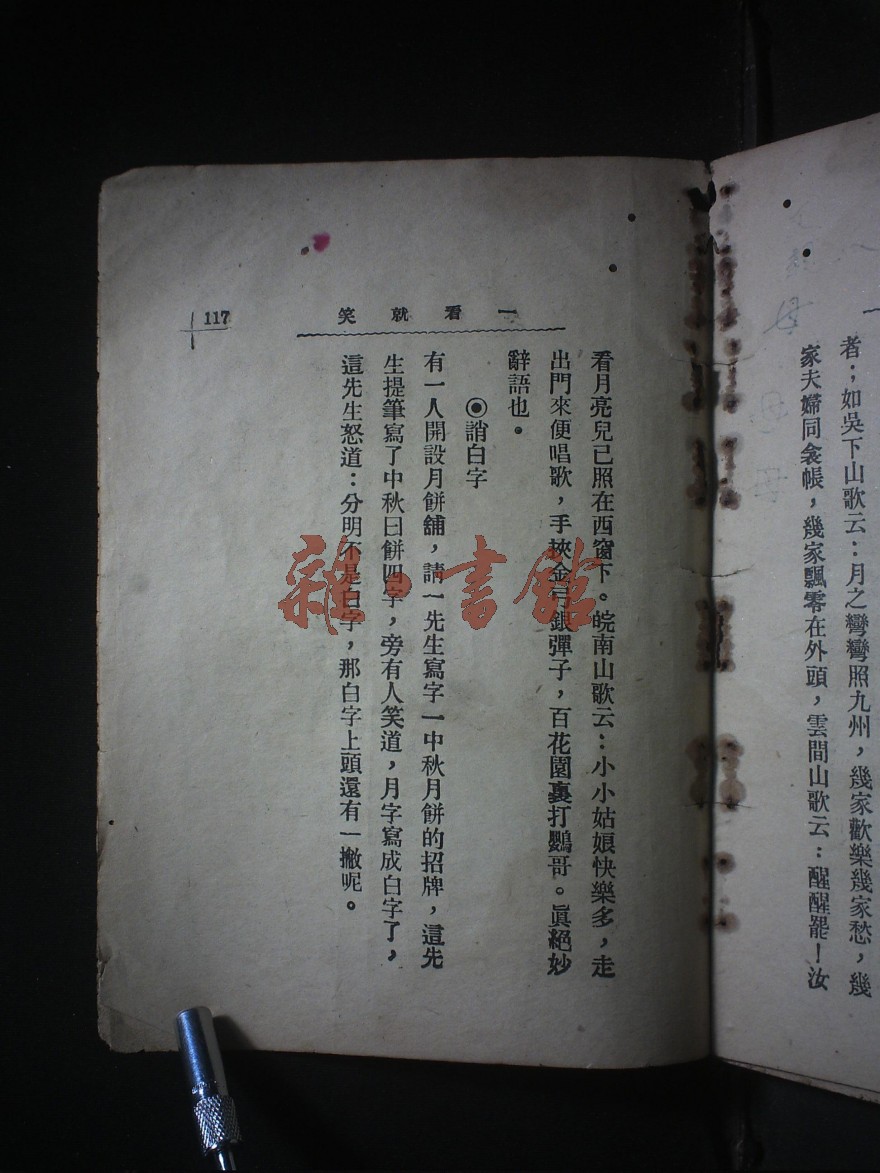 者；如吳下山歌云：月之彎彎照九州，幾家歡樂幾家愁，幾
家夫婦同衾帳，幾家飄零在外頭，雲間山歌云：醒醒罷！汝
一看就笑
117
看月亮兒已照在西窗下。皖南山歌云：小小姑娘快樂多，走
出門來便唱歌，手挾金弓銀彈子，百花園裏打鸚哥。眞絕妙
辭語也。
◉誚白字
有一人開設月餅舖，請一先生寫字一中秋月餅的招牌，這先
生提筆寫了中秋曰餅四字，旁有人笑道，月字寫成白字了，
這先生怒道：分明不是白字，那白字上頭還有一撇呢。
雜·書館